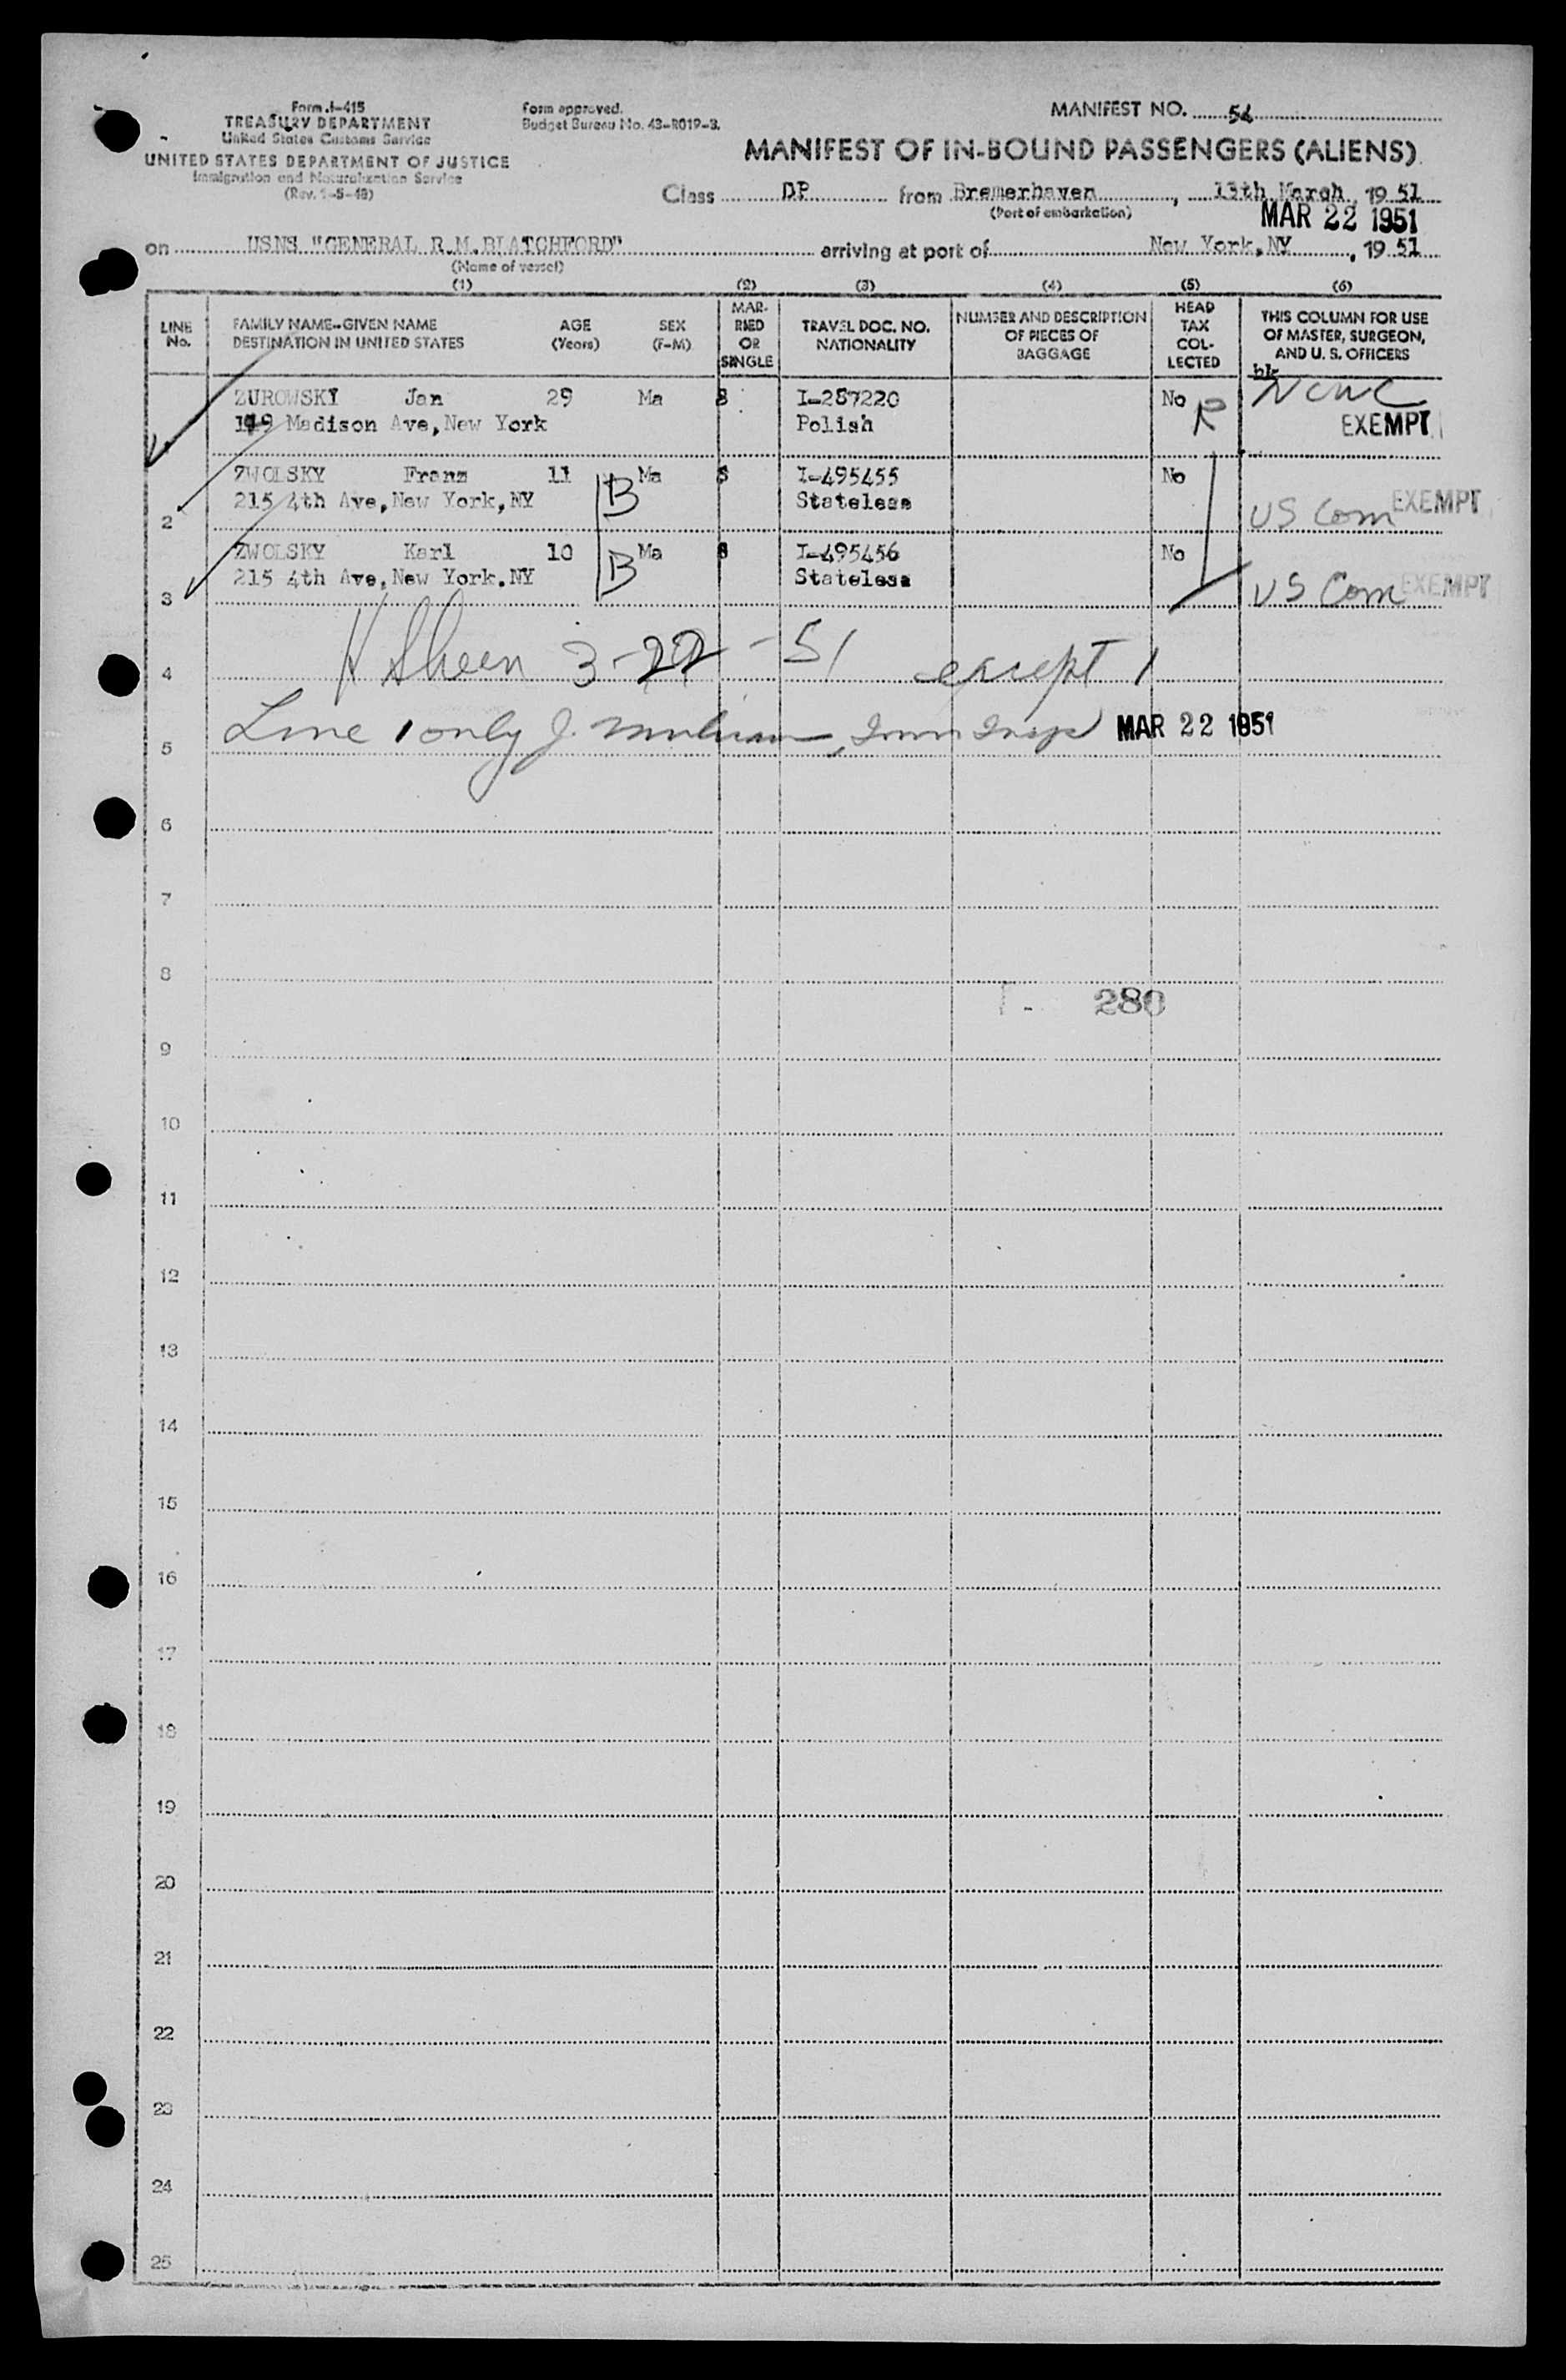 Form I-415
TREASURY DEPARTMENT
United States Customs Service
UNITED STATES DEPARTMENT OF JUSTICE
Immigration and Naturalization Service
Form approved.
Budget Bureau No. 43-R019-3.
MANIFEST NO. 54
MANIFEST OF IN-BOUND PASSENGERS (ALIENS)
Class DP from Bremerhaven, 13th March, 1951
(Port of embarkation)
MAR 22 1951
on USNS "GENERAL R.M.BLATCHFORD" arriving at port of New York,NY, 1951
(Name of vessel)
(1) (2) (3) (4) (5) (6)
LINE No. FAMILY NAME-GIVEN NAME DESTINATION IN UNITED STATES AGE (Years) SEX (F-M) MARRIED OR SINGLE TRAVEL DOC. NO. NATIONALITY NUMBER AND DESCRIPTION OF PIECES OF BAGGAGE HEAD TAX COLLECTED THIS COLUMN FOR USE OF MASTER, SURGEON, AND U. S. OFFICERS
ZUROWSKI Jan 29 Ma S I-287220 No R NCWC
Madison Ave,New York Polish EXEMPT
ZWOLSKY Franz 11 B Ma S I-495455 No
2 215 4th Ave,New York,NY Stateless US Com EXEMPT
ZWOLSKY Karl 10 B Ma S I-495456 No
3 215 4th Ave,New York.NY Stateless US Com EXEMPT
4 3-22-51 except 1
5 Line 1 only J. Imm Insp MAR 22 1951
6
7
8
280
9
10
11
12
13
14
15
16
17
18
19
20
21
22
23
24
25